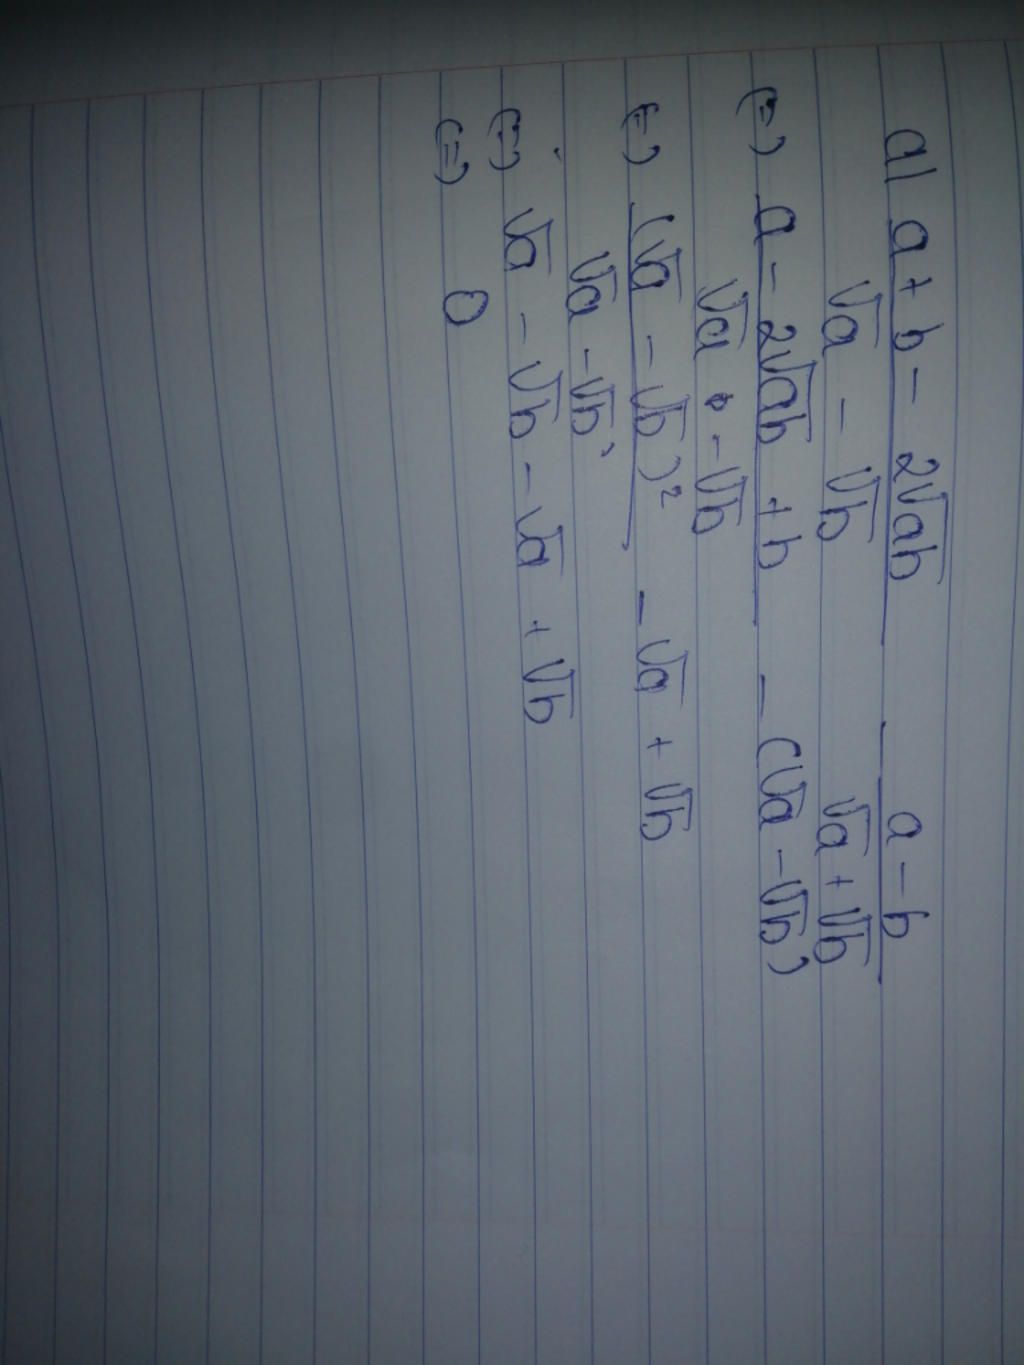 a) a + b - 2√ab / √a - √b - a - b / √a + √b
(=) a - 2√ab + b / √a - √b - (√a - √b)
(=) (√a - √b)² / √a - √b - √a + √b
(=) √a - √b - √a + √b
(=) 0